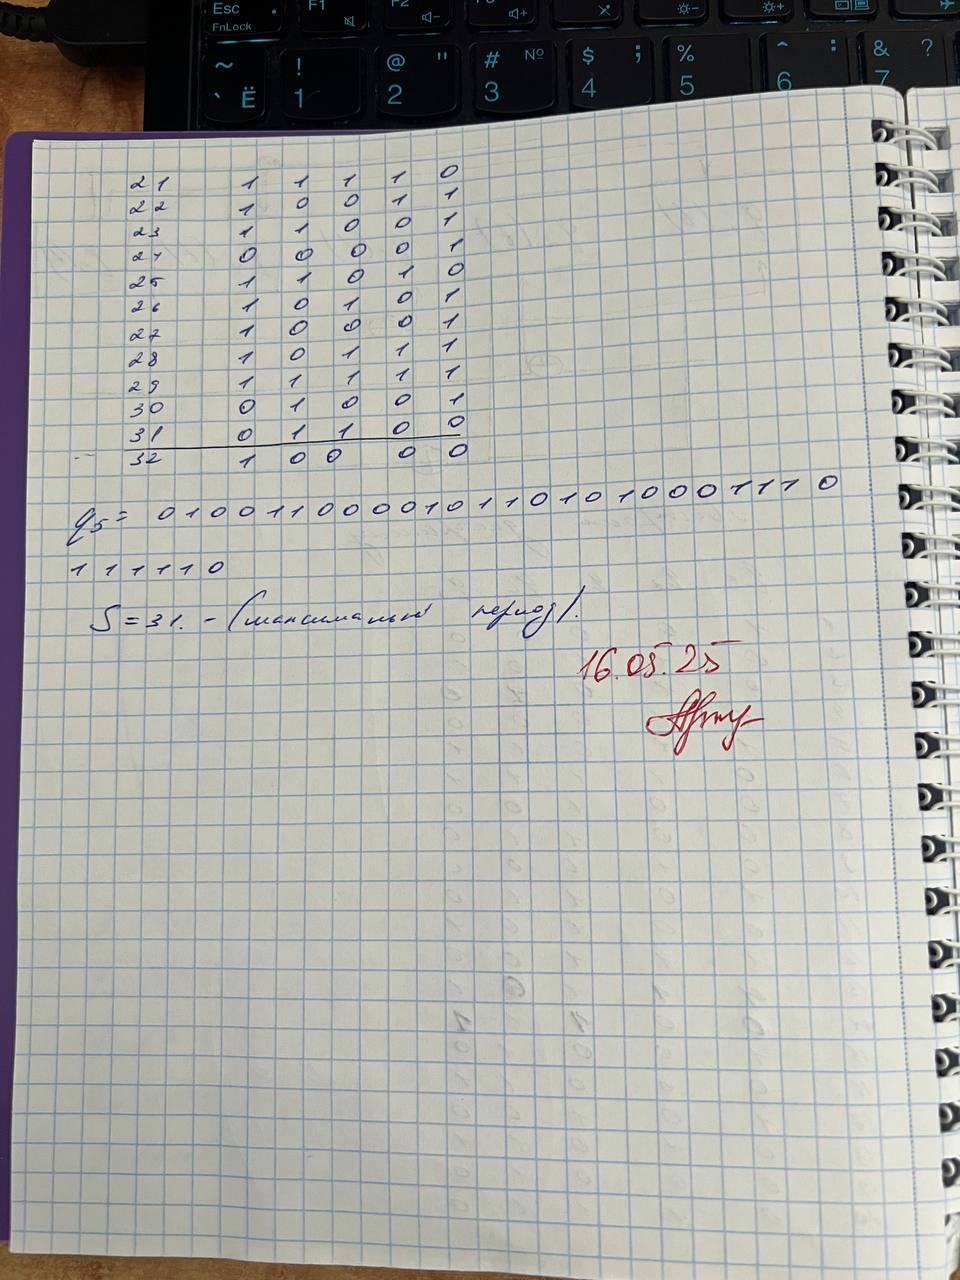 Esc FnLock F1 F2
~ ` Ё ! 1 @ " 2 # № 3 $ ; 4 % 5 ^ : 6 & ? 7
21 1 1 1 1 0
22 1 0 0 1 1
23 1 1 0 0 1
24 0 0 0 0 1
25 1 1 0 1 0
26 1 0 1 0 1
27 1 0 0 0 1
28 1 0 1 1 1
29 1 1 1 1 1
30 0 1 0 0 1
31 0 1 1 0 0
32 1 0 0 0 0
q5 = 0 1 0 0 1 1 0 0 0 0 1 0 1 1 0 1 0 1 0 0 0 1 1 1 0
1 1 1 1 1 0
S = 31. - (максимальный период).
16.05.25